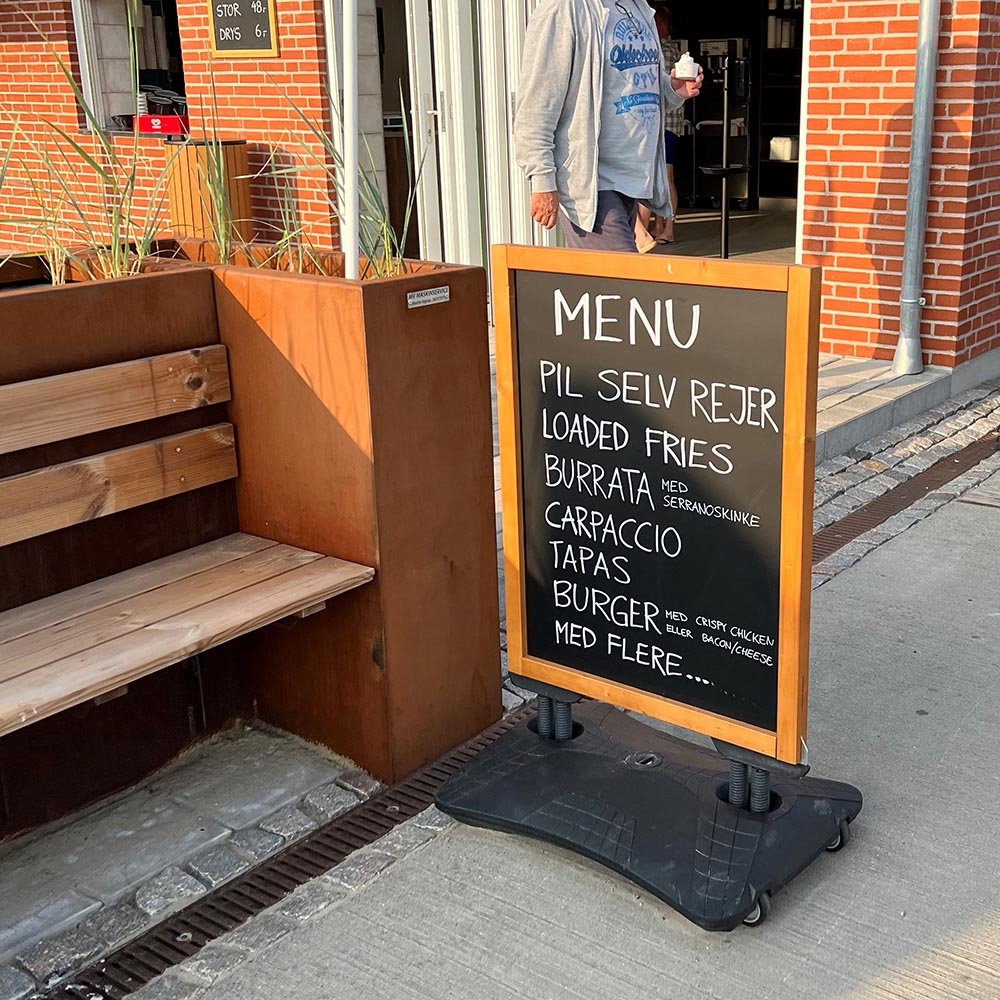 STOR 48,-
DRYS 6,-
MV MASKINSERVICE
MENU
PIL SELV REJER
LOADED FRIES
BURRATA MED
SERRANOSKINKE
CARPACCIO
TAPAS
BURGER MED CRISPY CHICKEN
ELLER BACON/CHEESE
MED FLERE.....